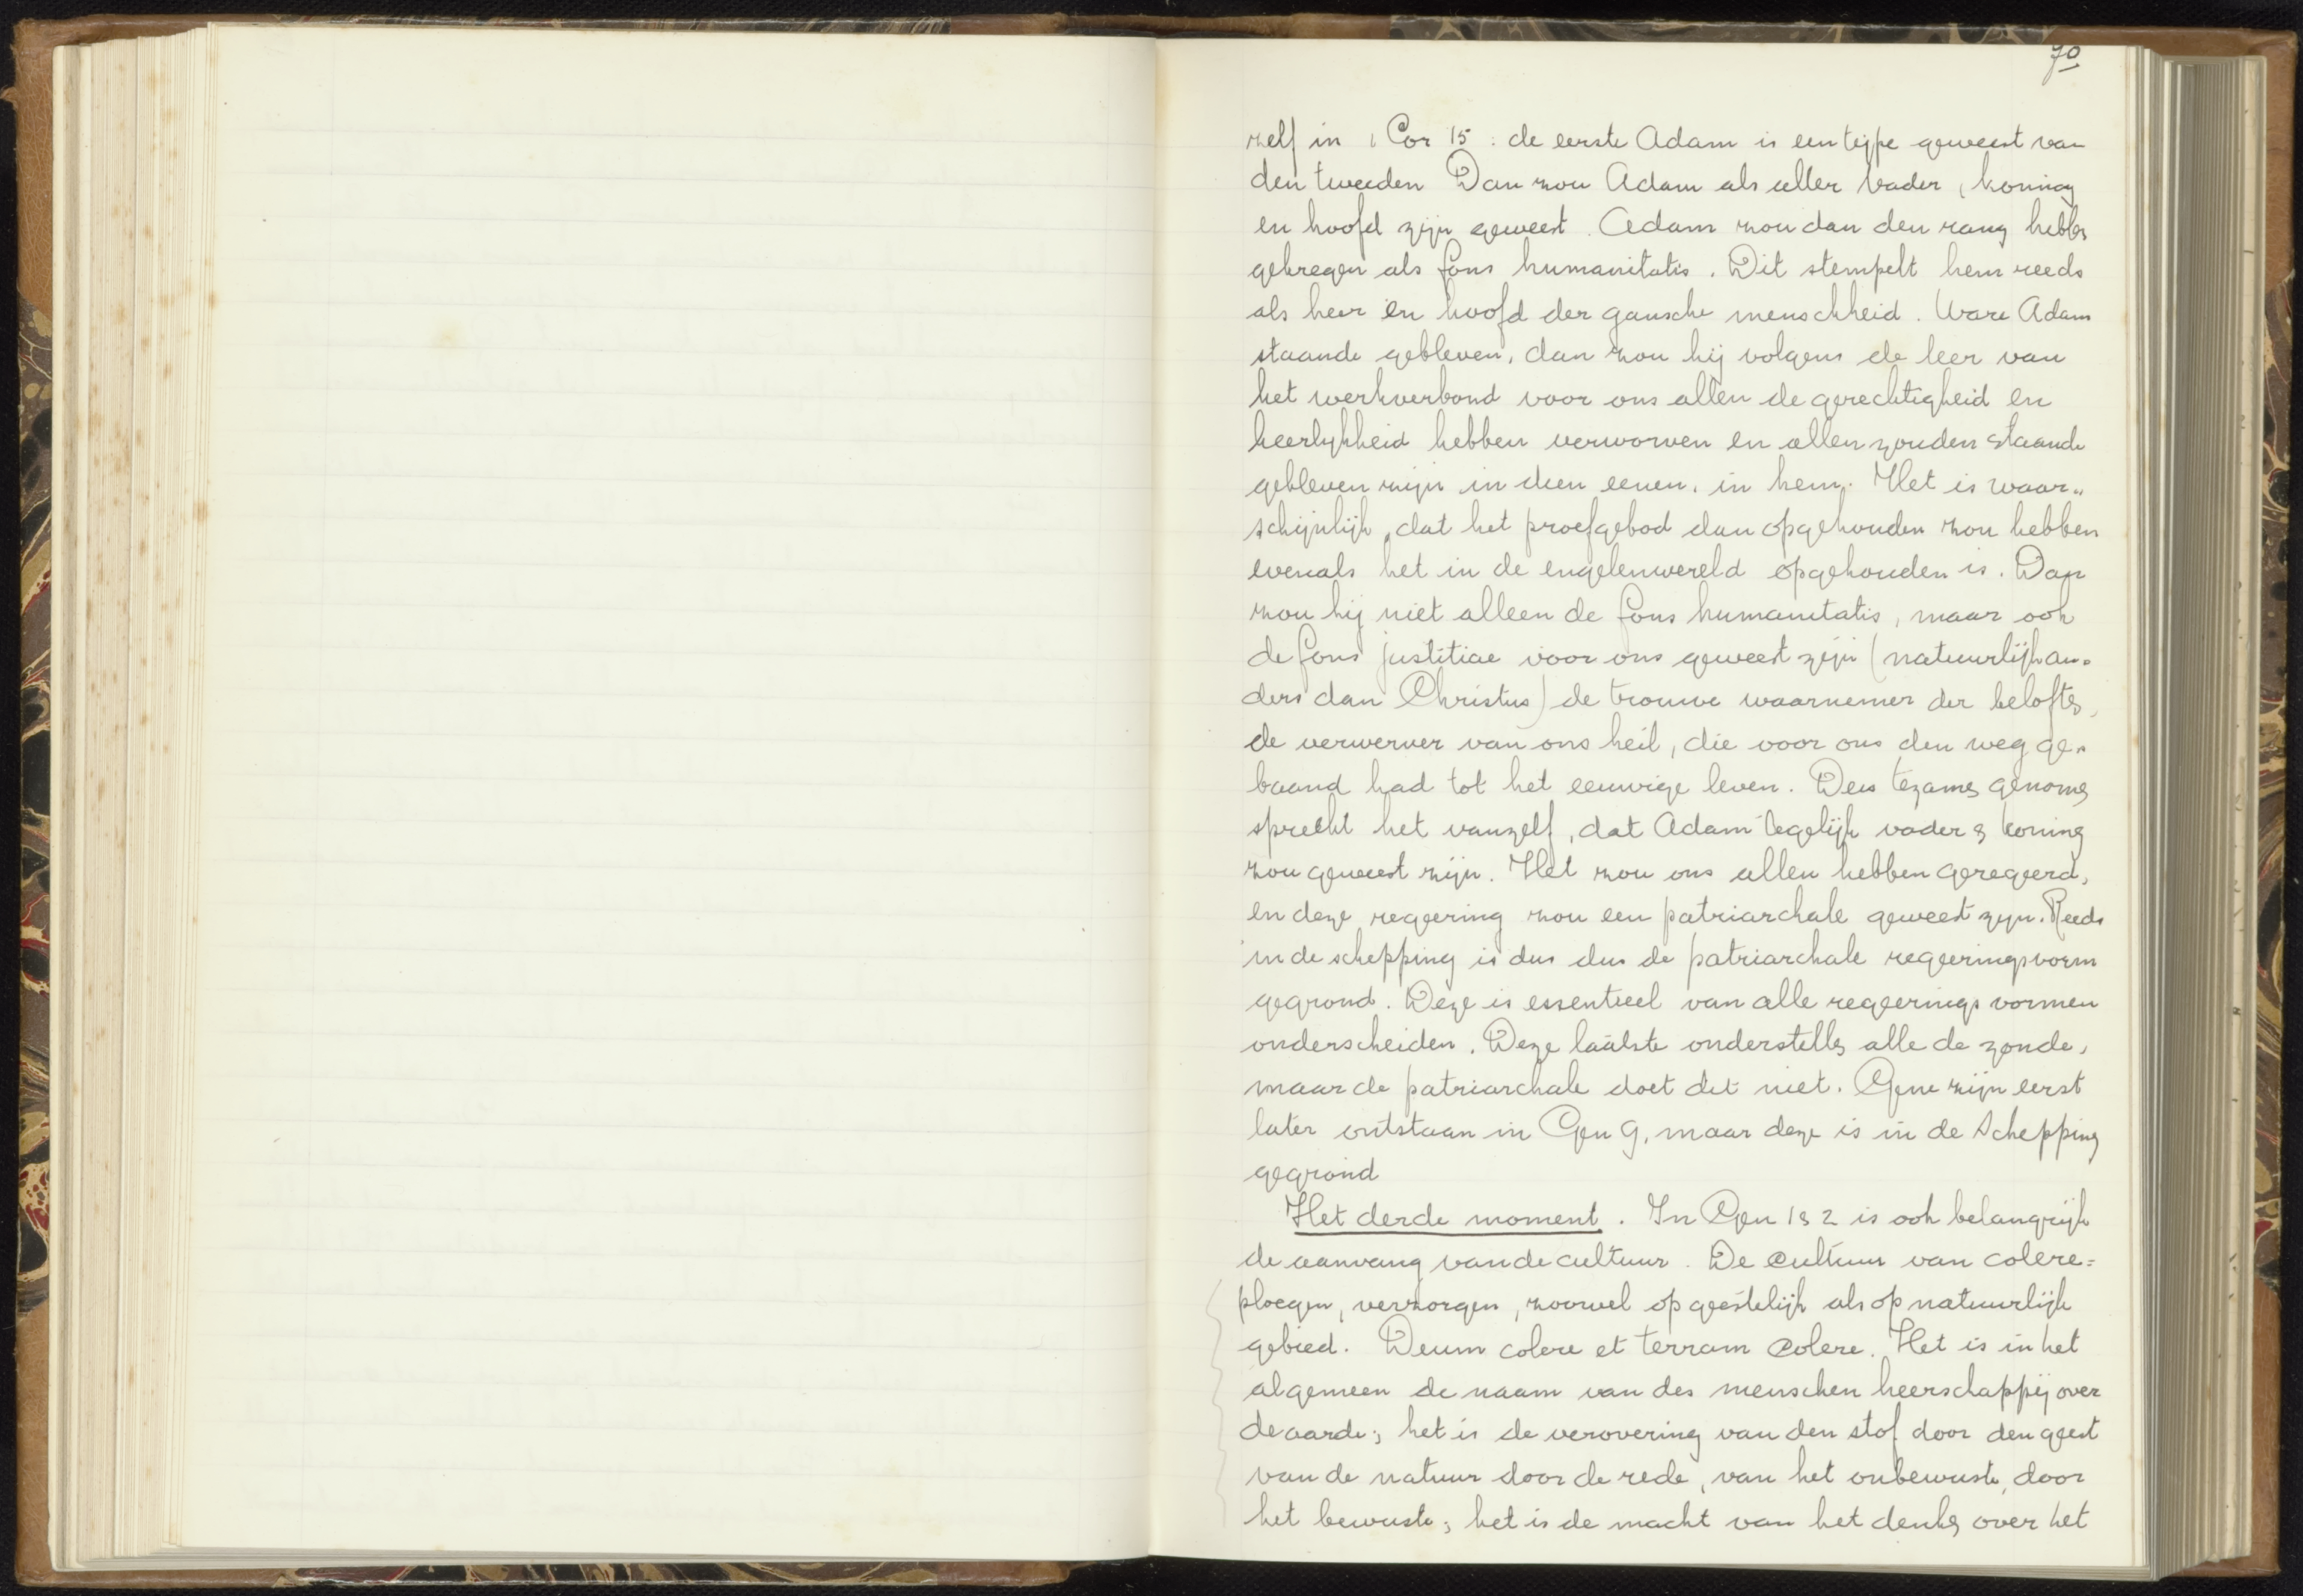 70
zelf in 1 Cor 15 : de eerste Adam is een type geweest van
den tweeden Dan zou Adam als aller vader, koning
en hoofd zijn geweest. Adam zou dan den rang hebben
gekregen als fons humanitatis. Dit stempelt hem reeds
als heer en hoofd der gansche menschheid. Ware Adam
staande gebleven, dan zou hij volgens de leer van
het werkverbond voor ons allen de gerechtigheid en
heerlykheid hebben verworven en allen zouden staande
gebleven zijn in dien eenen, in hem. Het is waar„
schijnlijk, dat het proefgebod dan opgehouden zou hebben
evenals het in de engelenwereld opgehouden is. Dan
zou hij niet alleen de fons humanitatis, maar ook
de fons justitiae voor ons geweest zijn (natuurlijk an„
ders dan Christus) de trouwe waarnemer der beloften,
de verwerver van ons heil, die voor ons den weg ge„
baand had tot het eeuwige leven. Dees tezamen genomen
spreekt het vanzelf, dat Adam tegelijk vader & koning
zou geweest zijn. Het zou ons allen hebben geregeerd,
en deze regeering zou een patriarchale geweest zyn. Reeds
in de schepping is dus dus de patriarchale regeeringsvorm
gegrond. Deze is essentieel van alle regeerings vormen
onderscheiden. Deze laatste onderstellen alle de zonde,
maar de patriarchale doet dit niet. Gene zijn eerst
later ontstaan in Gen 9, maar deze is in de schepping
gegrond
Het derde moment. In Gen 1 & 2 is ook belangrijk
de aanvang van de cultuur. De cultuur van colere =
ploegen, verzorgen, zoowel op geestelijk als op natuurlijk
gebied. Deum colere et terram colere. Het is in het
algemeen de naam van des menschen heerschappij over
de aarde; het is de verovering van den stof door den geest
van de natuur door de rede, van het onbewuste, door
het bewuste; het is de macht van het denken over het